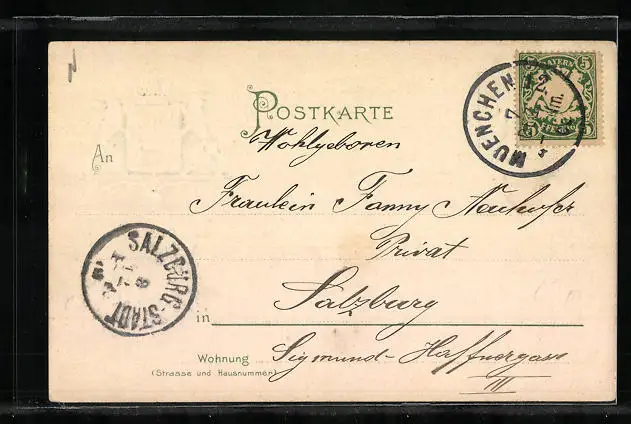 BAYERN
5
MUENCHEN
POSTKARTE
Wohlgeboren
An
Fräulein Fanny Neuhofer
Privat
SALZBURG-STADT
Salzburg
in
Wohnung Sigmund-Haffnergasse
(Strasse und Hausnummer)
III